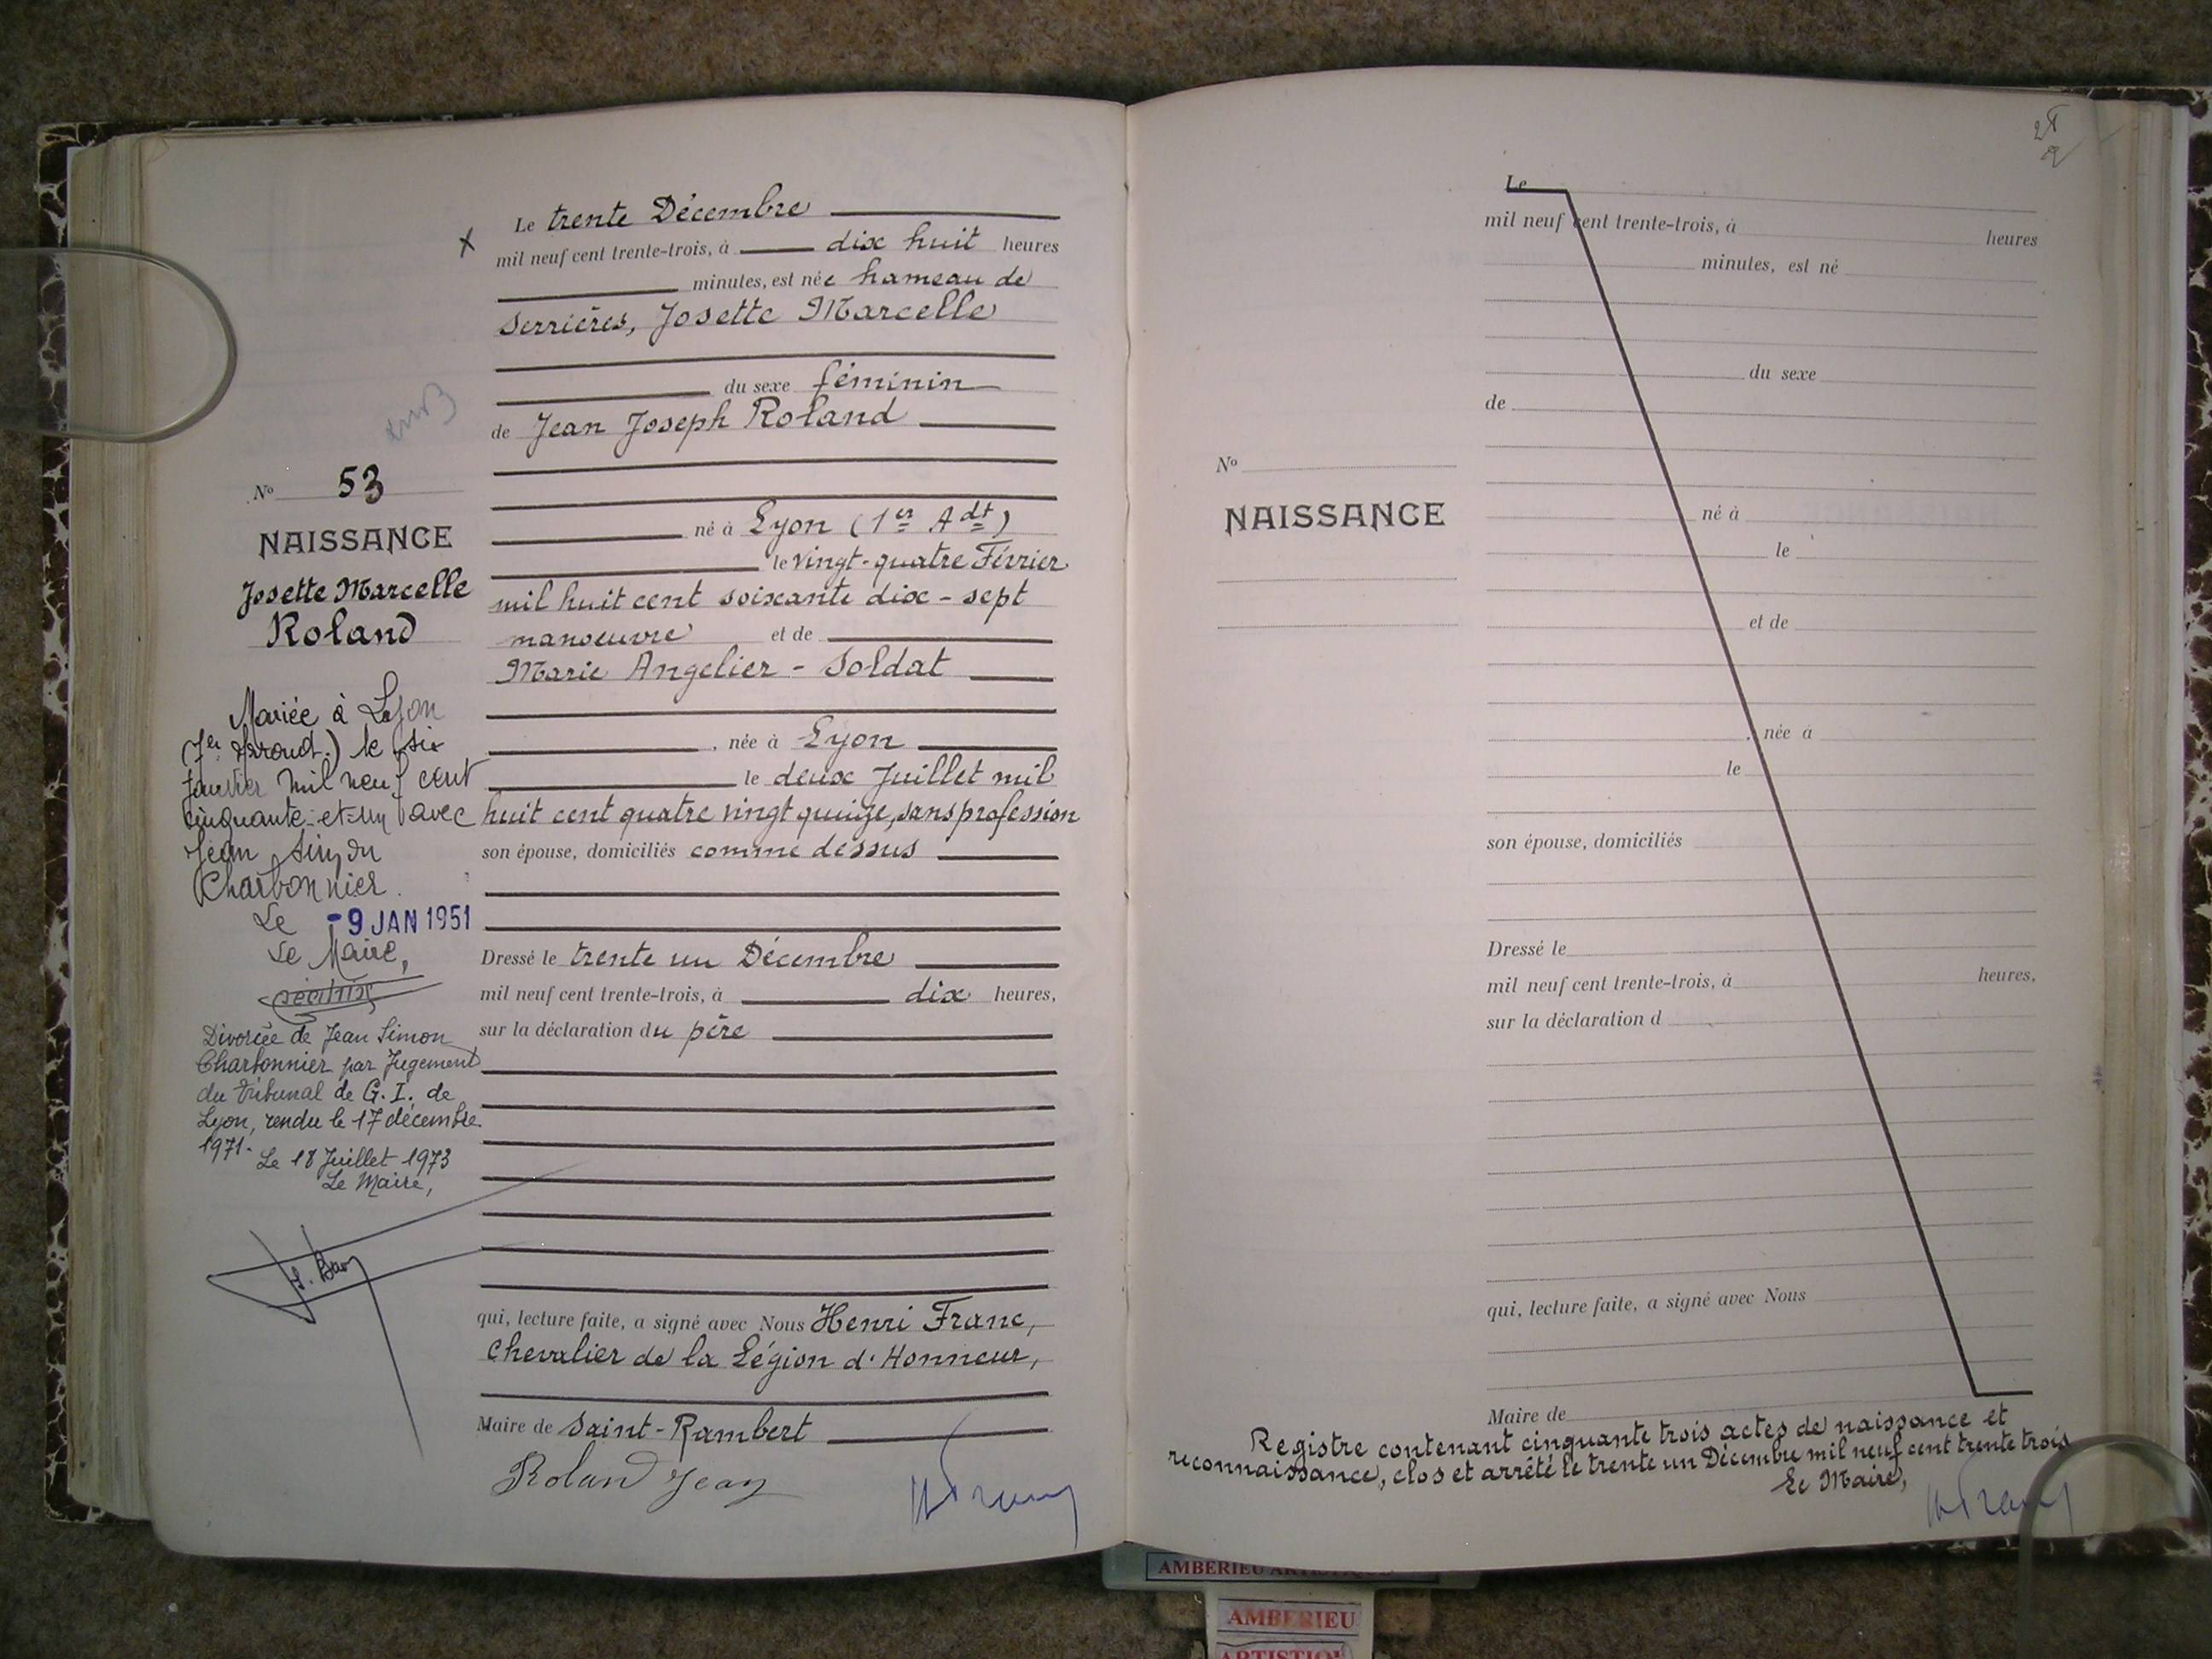 Le trente Décembre
mil neuf cent trente-trois, à dix huit heures
minutes, est née hameau de
Serrières, Josette Marcelle
du sexe féminin
de Jean Joseph Roland
né à Lyon (1er Adt)
le vingt-quatre Février
mil huit cent soixante dix-sept
manoeuvre et de
Marie Angelier-Soldat
, née à Lyon
le deux Juillet mil
huit cent quatre vingt quinze, sans profession
son épouse, domiciliés comme dessus
Dressé le trente un Décembre
mil neuf cent trente-trois, à dix heures,
sur la déclaration du père
qui, lecture faite, a signé avec Nous Henri Franc,
Chevalier de la Légion d'Honneur,
Maire de Saint-Rambert
Roland Jean
No 53
NAISSANCE
Josette Marcelle
Roland
Mariée à Lyon
le six
Janvier mil neuf cent
cinquante-et-un avec
Jean Simon
Charbonnier.
Le -9 JAN 1951
Le Maire,
Divorcée de Jean Simon
Charbonnier par Jugement
du tribunal de G. I. de
Lyon, rendu le 17 décembre
1971.
Le 18 Juillet 1973
Le Maire,
Le
mil neuf cent trente-trois, à heures
minutes, est né
du sexe
de
No
NAISSANCE
né à
le
et de
, née à
le
son épouse, domiciliés
Dressé le
mil neuf cent trente-trois, à heures,
sur la déclaration d
qui, lecture faite, a signé avec Nous
Maire de
Registre contenant cinquante trois actes de naissance et
reconnaissance, clos et arrêté le trente un Décembre mil neuf cent trente trois
Le Maire,
AMBERIEU ARTISTIQUE
AMBERIEU
ARTISTIQU